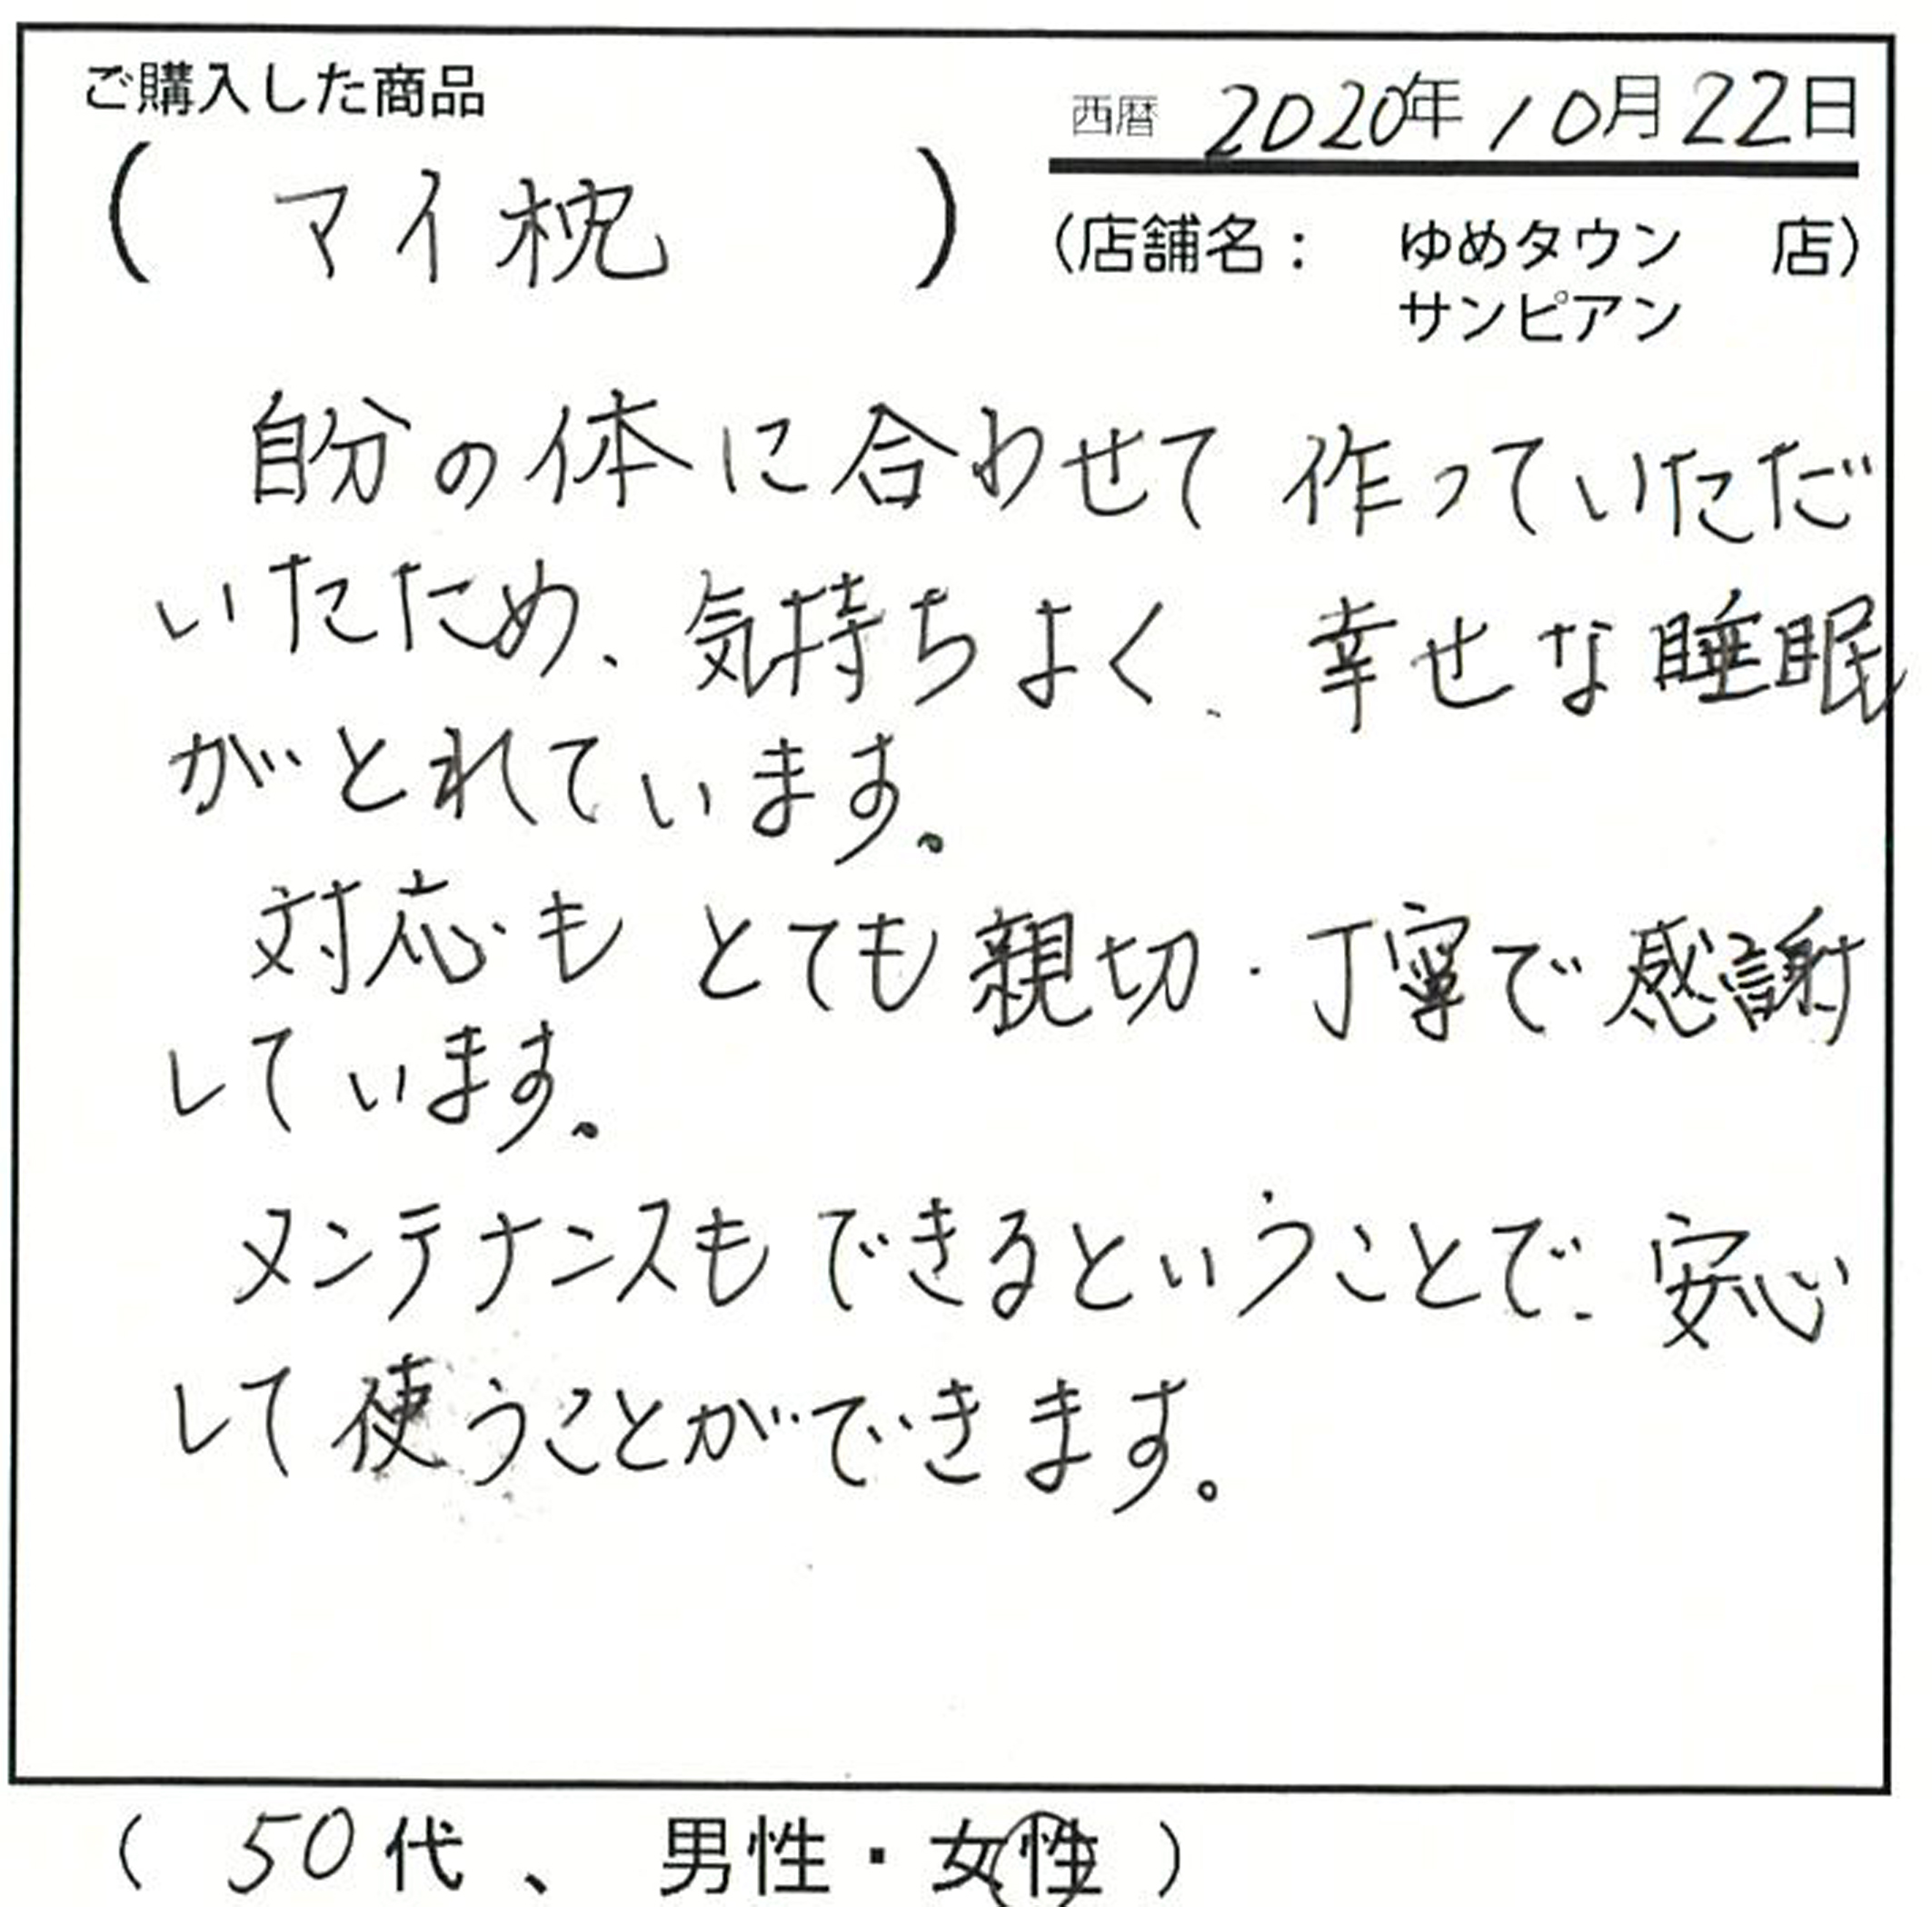 ご購入した商品
西暦 2020年 10月 22日
( マイ枕 )
(店舗名： ゆめタウン 店)
サンピアン
自分の体に合わせて 作っていただ
いたため、気持ちよく、幸せな睡眠
がとれています。
対応も とても親切・丁寧で感謝
しています。
メンテナンスも できるということで、安心
して使うことができます。
( 50代 、 男性・女性 )